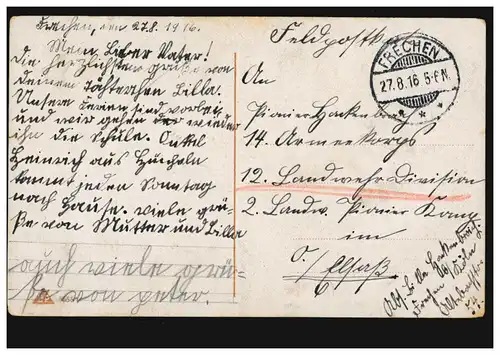 Frechen, den 27.8.1916.
Mein Lieber Vater!
die herzlichsten grüße von
deinem Töchterchen Billa.
Unsere Ferien sind vorbei
und wir gehen wieder
in die Schule. Onkel
Heinrich aus Hücheln
kommt jeden Sonntag
nach Hause. viele grü-
ße von Mutter und Billa
auch viele grü-
ße von peter.
Feldpostk
FRECHEN
27.8.16 5-6 N.
An
Pionier Hackenbroch
14. Armeekorps
12. Landwehr Division
2. Landw. Pionier Komp
im
O/ Elsaß
Abs.
Frechen